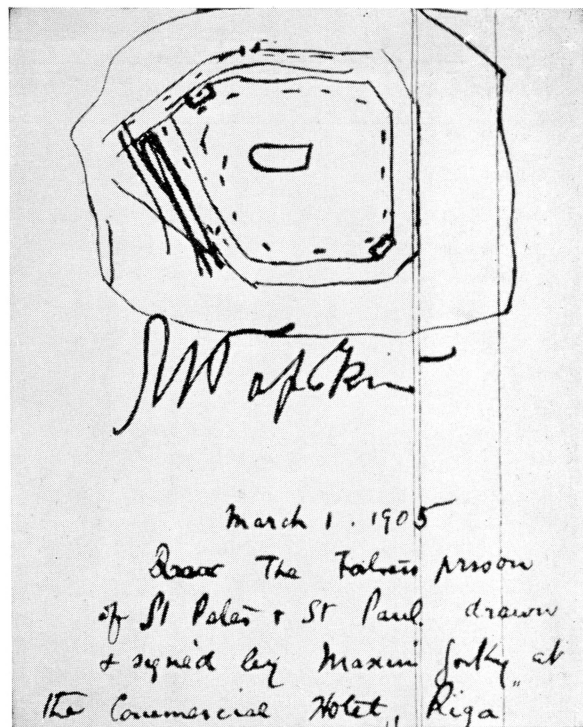 М Горький
March 1. 1905
The Fortress prison
of St Peter & St Paul. drawn
& signed by Maxim Gorky at
the Commercial Hotel, Riga"